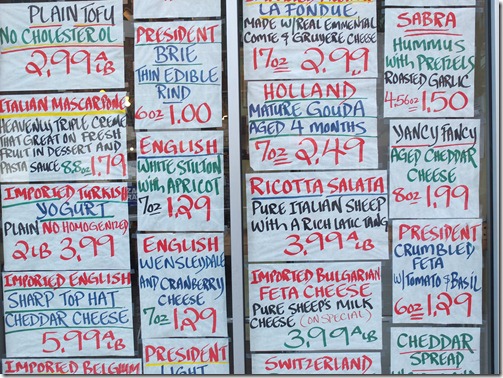 PLAIN TOFU
NO CHOLESTEROL
2.99 A LB
ITALIAN MASCARPONE
HEAVENLY TRIPLE CREME
THAT GREAT ON FRESH
FRUIT IN DESSERT AND
PASTA SAUCE 8.8oz 1.79
IMPORTED TURKISH
YOGURT
PLAIN NO HOMOGENIZED
2LB 3.99
IMPORTED ENGLISH
SHARP TOP HAT
CHEDDAR CHEESE
5.99 A LB
IMPORTED BELGIUM
PRESIDENT
BRIE
THIN EDIBLE
RIND
6oz 1.00
ENGLISH
WHITE STILTON
WITH APRICOT
7oz 1.29
ENGLISH
WENSLEYDALE
AND CRANBERRY
CHEESE
7oz 1.29
PRESIDENT
LIGHT
LA FONDUE
MADE W/REAL EMMENTAL
COMTE & GRUYERE CHEESE
17oz 2.99
HOLLAND
MATURE GOUDA
AGED 4 MONTHS
7oz 2.49
RICOTTA SALATA
PURE ITALIAN SHEEP
WITH A RICH LATIC TANG
3.99 A LB
IMPORTED BULGARIAN
FETA CHEESE
PURE SHEEP'S MILK
CHEESE (ON SPECIAL)
3.99 A LB
SWITZERLAND
SABRA
HUMMUS
WITH PRETZELS
ROASTED GARLIC
4.56oz 1.50
YANCY FANCY
AGED CHEDDAR
CHEESE
8oz 1.99
PRESIDENT
CRUMBLED
FETA
W/TOMATO & BASIL
6oz 1.29
CHEDDAR
SPREAD